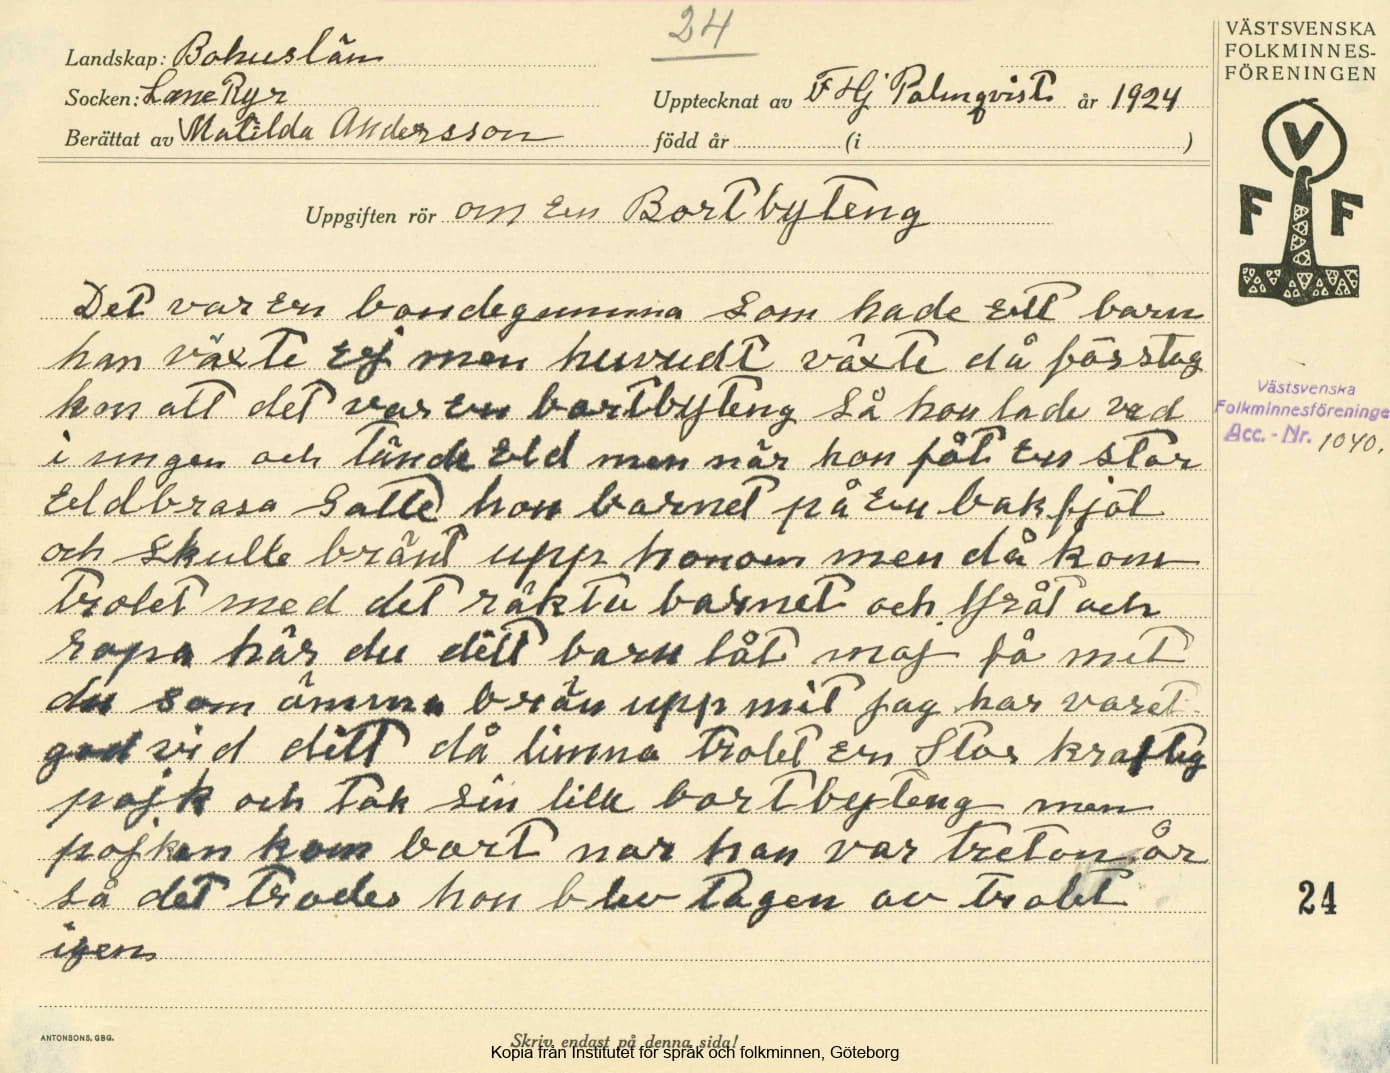 24
Landskap: Bohuslän
Socken: Lane Ryr
Upptecknat av F Hj Palmqvist år 1924
Berättat av Matilda Andersson född år (i )
Uppgiften rör om En Bortbyteng
Det var En bondegumma Som hade Ett barn
han växte Ej men huvudt växte då förstog
hon att det var En bortbyteng Så hon lade ved
i ungen och tände Eld men när hon fåt En stor
Eldbrasa Satte hon barnet på En bakfjöl
och skulle bränt upp honom men då kom
trolet med det räkta barnet och gråt och
ropa här du ditt barn låt maj få mit
du som ämna brän upp mit jag har varet
god vid ditt då limna trolet En Stor kraftig
pojk och tok sin lille bortbyteng men
pojken kom bort nar han var treton år
så det trodes hon blev tagen av trolet
igen
VÄSTSVENSKA
FOLKMINNES-
FÖRENINGEN
V
F F
Västsvenska
Folkminnesföreninge
Acc.-Nr. 1040.
24
ANTONSONS, GBG.
Skriv endast på denna sida!
Kopia från Institutet för språk och folkminnen, Göteborg